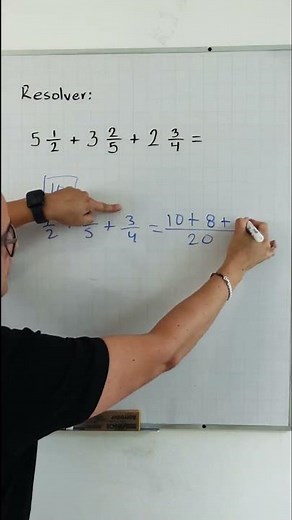 Resolver:
5 1/2 + 3 2/5 + 2 3/4 =
2 + 5 + 3/4 = 10 + 8 + / 20